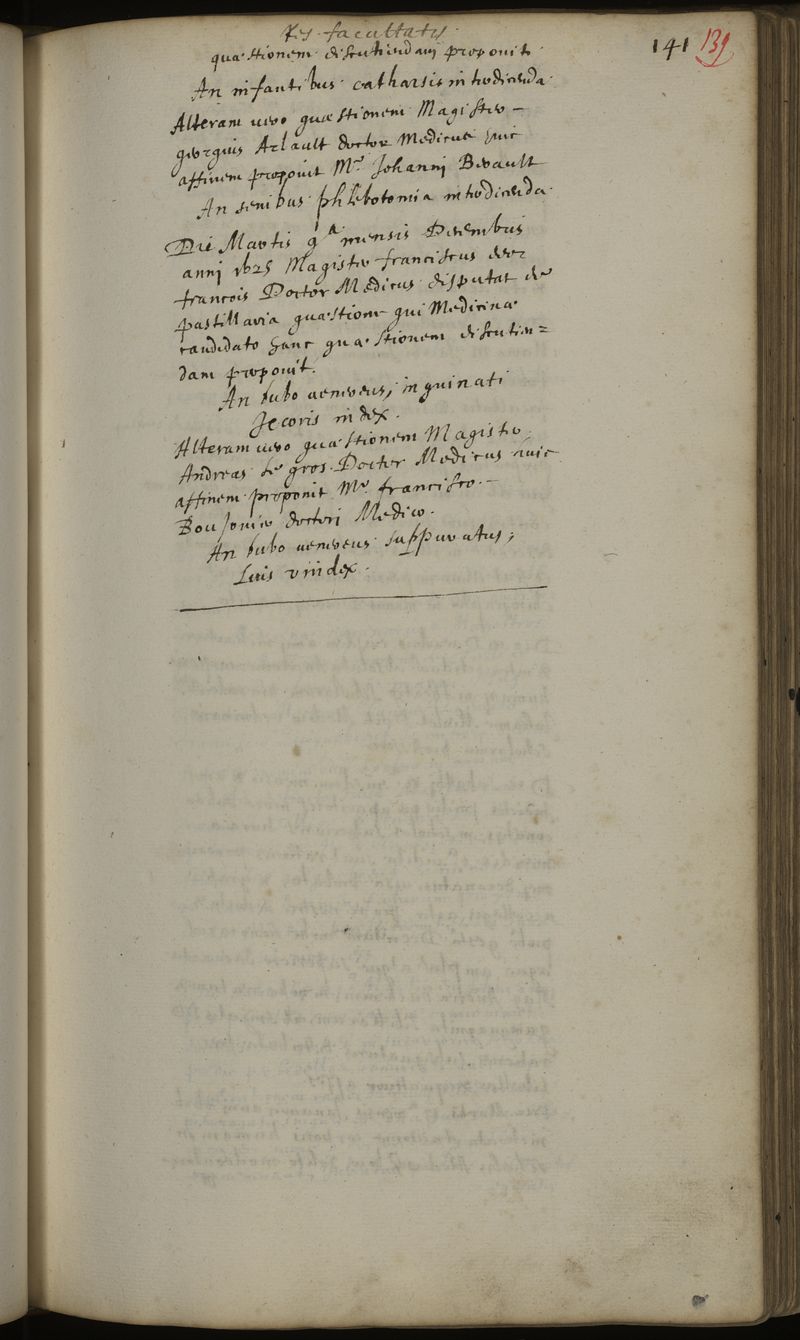 tis facultatis
quæstionem discutiendam proponit
An infantibus catharsis introducenda
141 139
Alteram vero quæstionem Magister
georgius Arlault doctor Medicus huic
affinem proponit Mr. Johanni Brault
An senibus phlebotomia introducenda
Die Martis 9a mensis Decembris
anni 1625 Magister franciscus
francois Doctor Medicus disputat de
pastillaria quæstione qui Medicinæ
candidato hanc quæstionem discutien=
dam proponit.
An bubo venereus, inquinati
Jecoris index.
Alteram vero quæstionem Magister
Andreas le gros Doctor Medicus huic
affinem proponit Mr. francisco
doctori Medico.
An bubo venereus suppuratus,
Luis vindex.